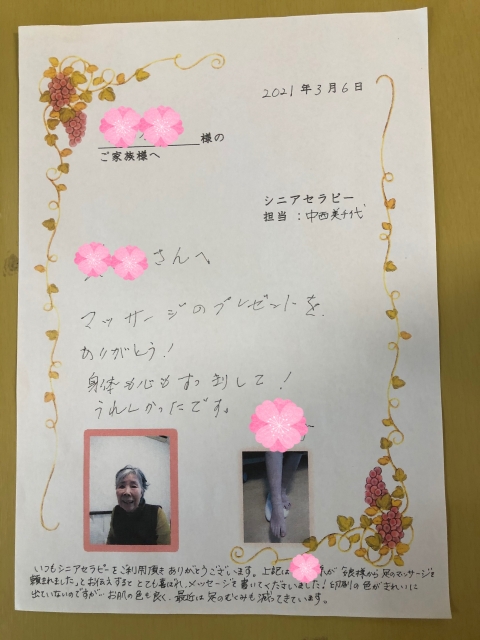 2021年3月6日
様の
ご家族様へ
シニアセラピー
担当：中西美千代
さんへ
マッサージのプレゼントを
ありがとう！
身体も心もすっきりして！
うれしかったです。
いつもシニアセラピーをご利用頂きありがとうございます。上記は 氏が 娘様から 足のマッサージを
頼まれました。ってお伝えすると とても喜ばれ、メッセージを書いてくださいました！印刷の色がきれいに
出ていないのですが… お肌の色も良く、最近は足のむくみも減ってきています。